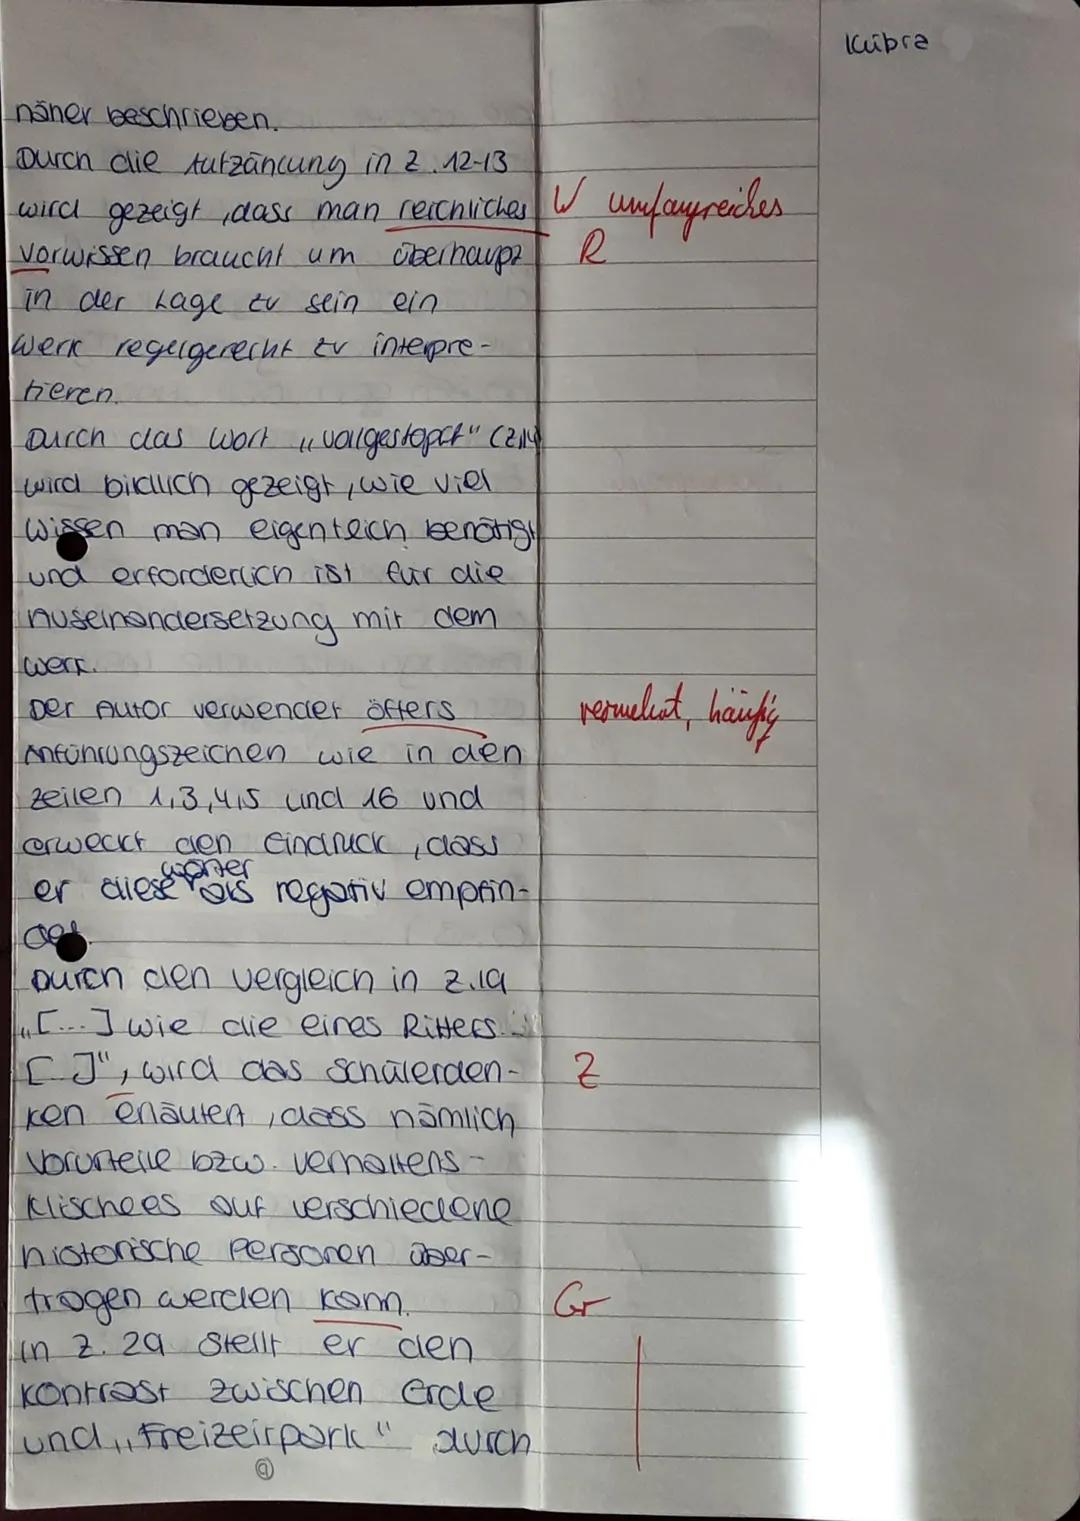 Kübra
näher beschrieben.
Durch die Aufzählung in Z. 12-13
wird gezeigt, dass man reichliches W umfangreiches
Vorwissen braucht um überhaupt R
in der Lage zu sein ein
Werk regelgerecht zu interpre-
tieren.
Durch das Wort „vollgestopft" (Z.14)
wird bildlich gezeigt, wie viel
Wissen man eigentlich benötigt
und erforderlich ist für die
Auseinandersetzung mit dem
Werk.
Der Autor verwendet öfters vermehrt, häufig
Anführungszeichen wie in den
Zeilen 1,3,4,5 und 16 und
erweckt den Eindruck, dass
er diese Wörter als negativ empfin-
det.
Durch den Vergleich in Z.19
„[...] wie die eines Ritters
[...]", wird das Schülerden- Z
ken erläutert, dass nämlich
Vorurteile bzw. Verhaltens-
klischees auf verschiedene
historische Personen über-
tragen werden kann. Gr
In Z. 29 stellt er den
Kontrast zwischen Erde
und „Freizeitpark" durch
9